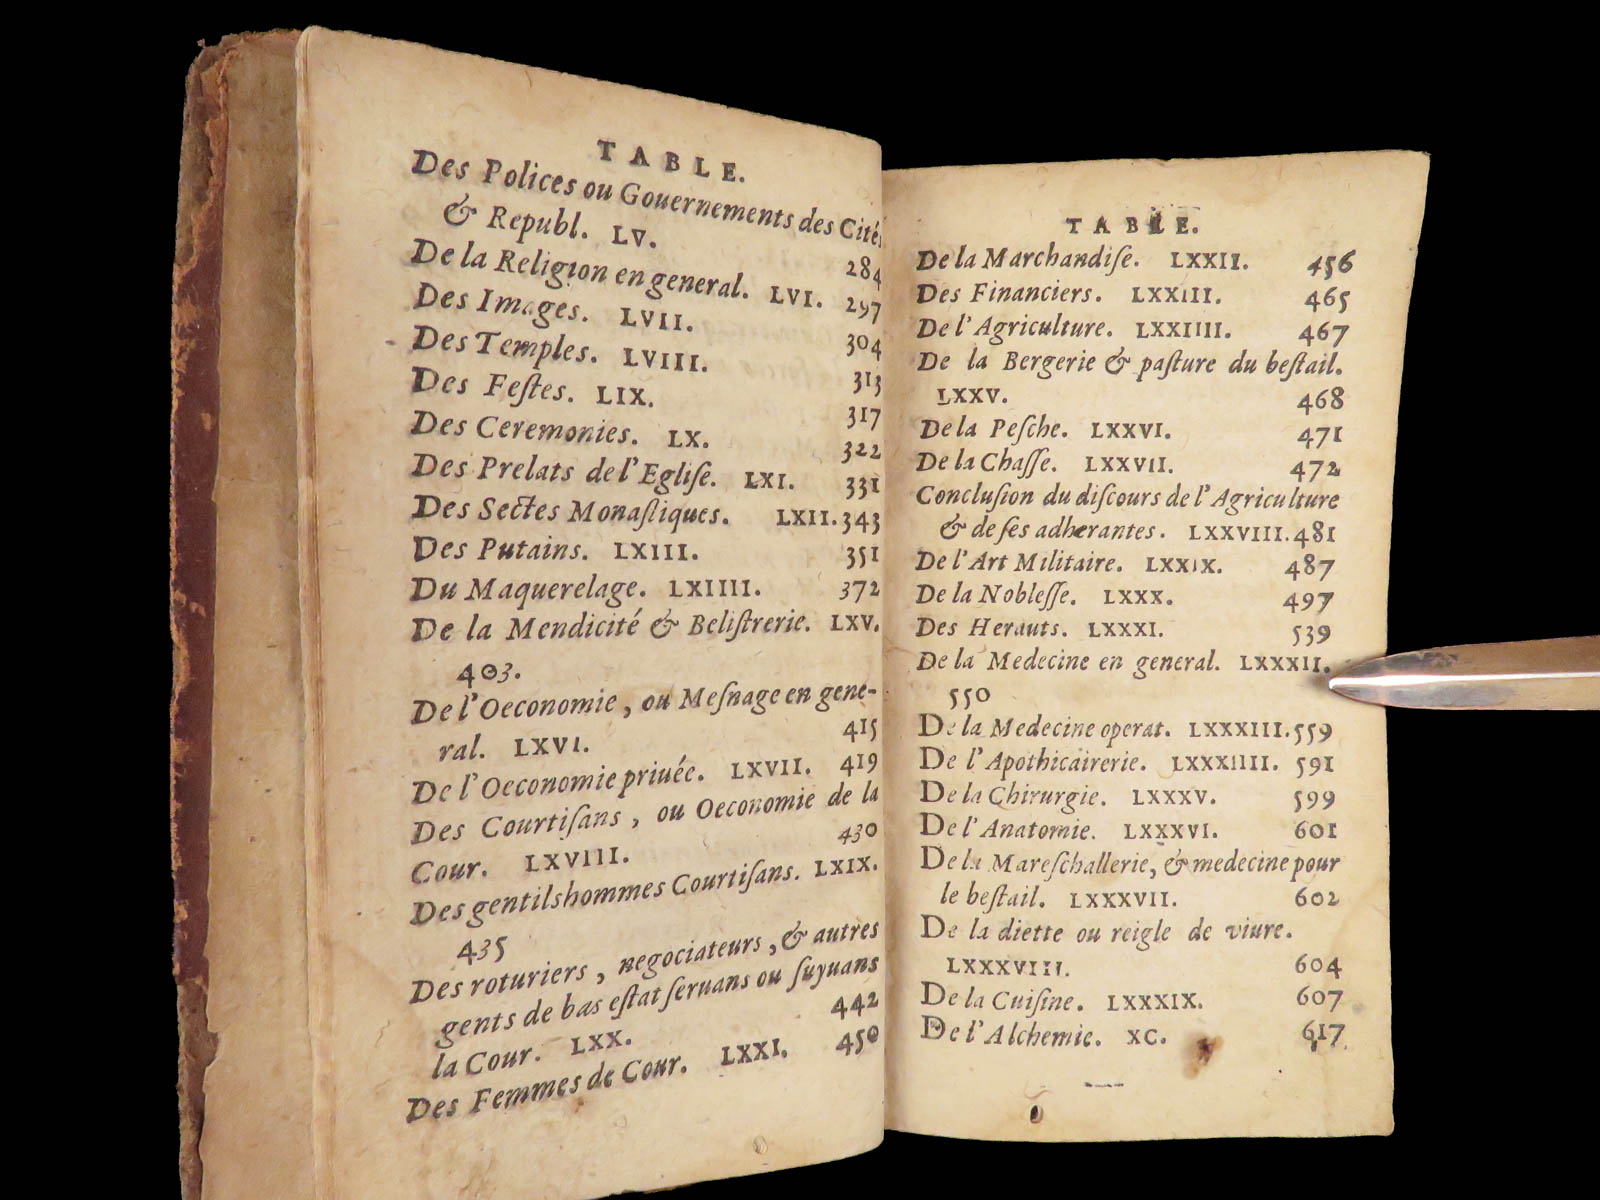 TABLE.
Des Polices ou Gouuernements des Cités
& Republ. LV. 284
De la Religion en general. LVI. 297
Des Images. LVII. 304
Des Temples. LVIII. 313
Des Feſtes. LIX. 317
Des Ceremonies. LX. 322
Des Prelats de l'Egliſe. LXI. 331
Des Sectes Monaſtiques. LXII. 343
Des Putains. LXIII. 351
Du Maquerelage. LXIIII. 372
De la Mendicité & Beliſtrerie. LXV.
403.
De l'Oeconomie, ou Meſnage en gene-
ral. LXVI. 415
De l'Oeconomie priuée. LXVII. 419
Des Courtiſans, ou Oeconomie de la
Cour. LXVIII. 430
Des gentilshommes Courtiſans. LXIX.
435
Des roturiers, negociateurs, & autres
gents de bas eſtat ſeruans ou ſuyuans
la Cour. LXX. 442
Des Femmes de Cour. LXXI. 450
TABLE.
De la Marchandiſe. LXXII. 456
Des Financiers. LXXIII. 465
De l'Agriculture. LXXIIII. 467
De la Bergerie & paſture du beſtail.
LXXV. 468
De la Peſche. LXXVI. 471
De la Chaſſe. LXXVII. 472
Concluſion du diſcours de l'Agriculture
& de ſes adherantes. LXXVIII. 481
De l'Art Militaire. LXXIX. 487
De la Nobleſſe. LXXX. 497
Des Herauts. LXXXI. 539
De la Medecine en general. LXXXII.
550
De la Medecine operat. LXXXIII. 559
De l'Apothicairerie. LXXXIIII. 591
De la Chirurgie. LXXXV. 599
De l'Anatomie. LXXXVI. 601
De la Mareſchallerie, & medecine pour
le beſtail. LXXXVII. 602
De la diette ou reigle de viure.
LXXXVIII. 604
De la Cuiſine. LXXXIX. 607
De l'Alchemie. XC. 617